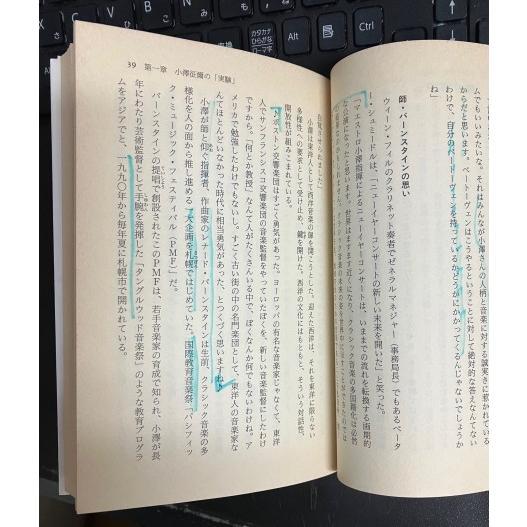 ムでもいいみたいな。それはみんなが小澤さんの人柄と音楽に対する誠実さに惹かれている
からだと思います。ベートーヴェンはこうやるということに対して絶対的な答えなんてない
わけで、自分のベートーヴェンを持っているかどうかにかかってくるんじゃないでしょうか
ね」
師・バーンスタインの思い
ウィーン・フィルのクラリネット奏者でゼネラルマネジャー(事務局長)でもあるペータ
ー・シュミードルは、「ニューイヤーコンサートの新しい未来を開いた」と笑った。
「マエストロ小澤指揮によるニューイヤーコンサートは、いままでの流れを転換する画期的
な公演になったと思う。世界はますます近くなり、クラシック音楽の多国籍化は必然
39 第一章 小澤征爾の「実験」
小澤は東洋人として西洋音楽の扉を開こうとした。迎えた西洋は、それを東洋に限らない
多様性への要求として受け止め、鍵を開けた。西洋の文化にはもともと、そういう対話性、
開放性が組みこまれている。
「ボストン交響楽団はすごく勇気があった。ヨーロッパの有名な音楽家じゃなくて、東洋
人でサンフランシスコ交響楽団の音楽監督をやっていたぼくを、新しい音楽監督にしたわけ
ですから。『何とか教授』なんて人がたくさんいる中で、ぼくなんか何でもないわけね。ア
メリカで勉強したわけでもないし。すごく古い街の中の名門楽団として、東洋人の音楽家な
んてほとんどいなかった時代に相当勇気があった、とつくづく思いますね」
小澤が師と仰ぐ指揮者、作曲家のレナード・バーンスタインは生前、クラシック音楽の多
様化を人の面から推し進める大企画を札幌ではじめていた。国際教育音楽祭「パシフィッ
ク・ミュージック・フェスティバル(PMF)」だ。
バーンスタインの提唱で創設されたこのPMFは、若手音楽家の育成で知られ、小澤が長
年にわたり芸術監督として手腕を発揮した「タングルウッド音楽祭」のような教育プログラ
ムをアジアでと、一九九〇年から毎年夏に札幌市で開かれている。
Alt
カタカナ
ひらがな
ローマ字